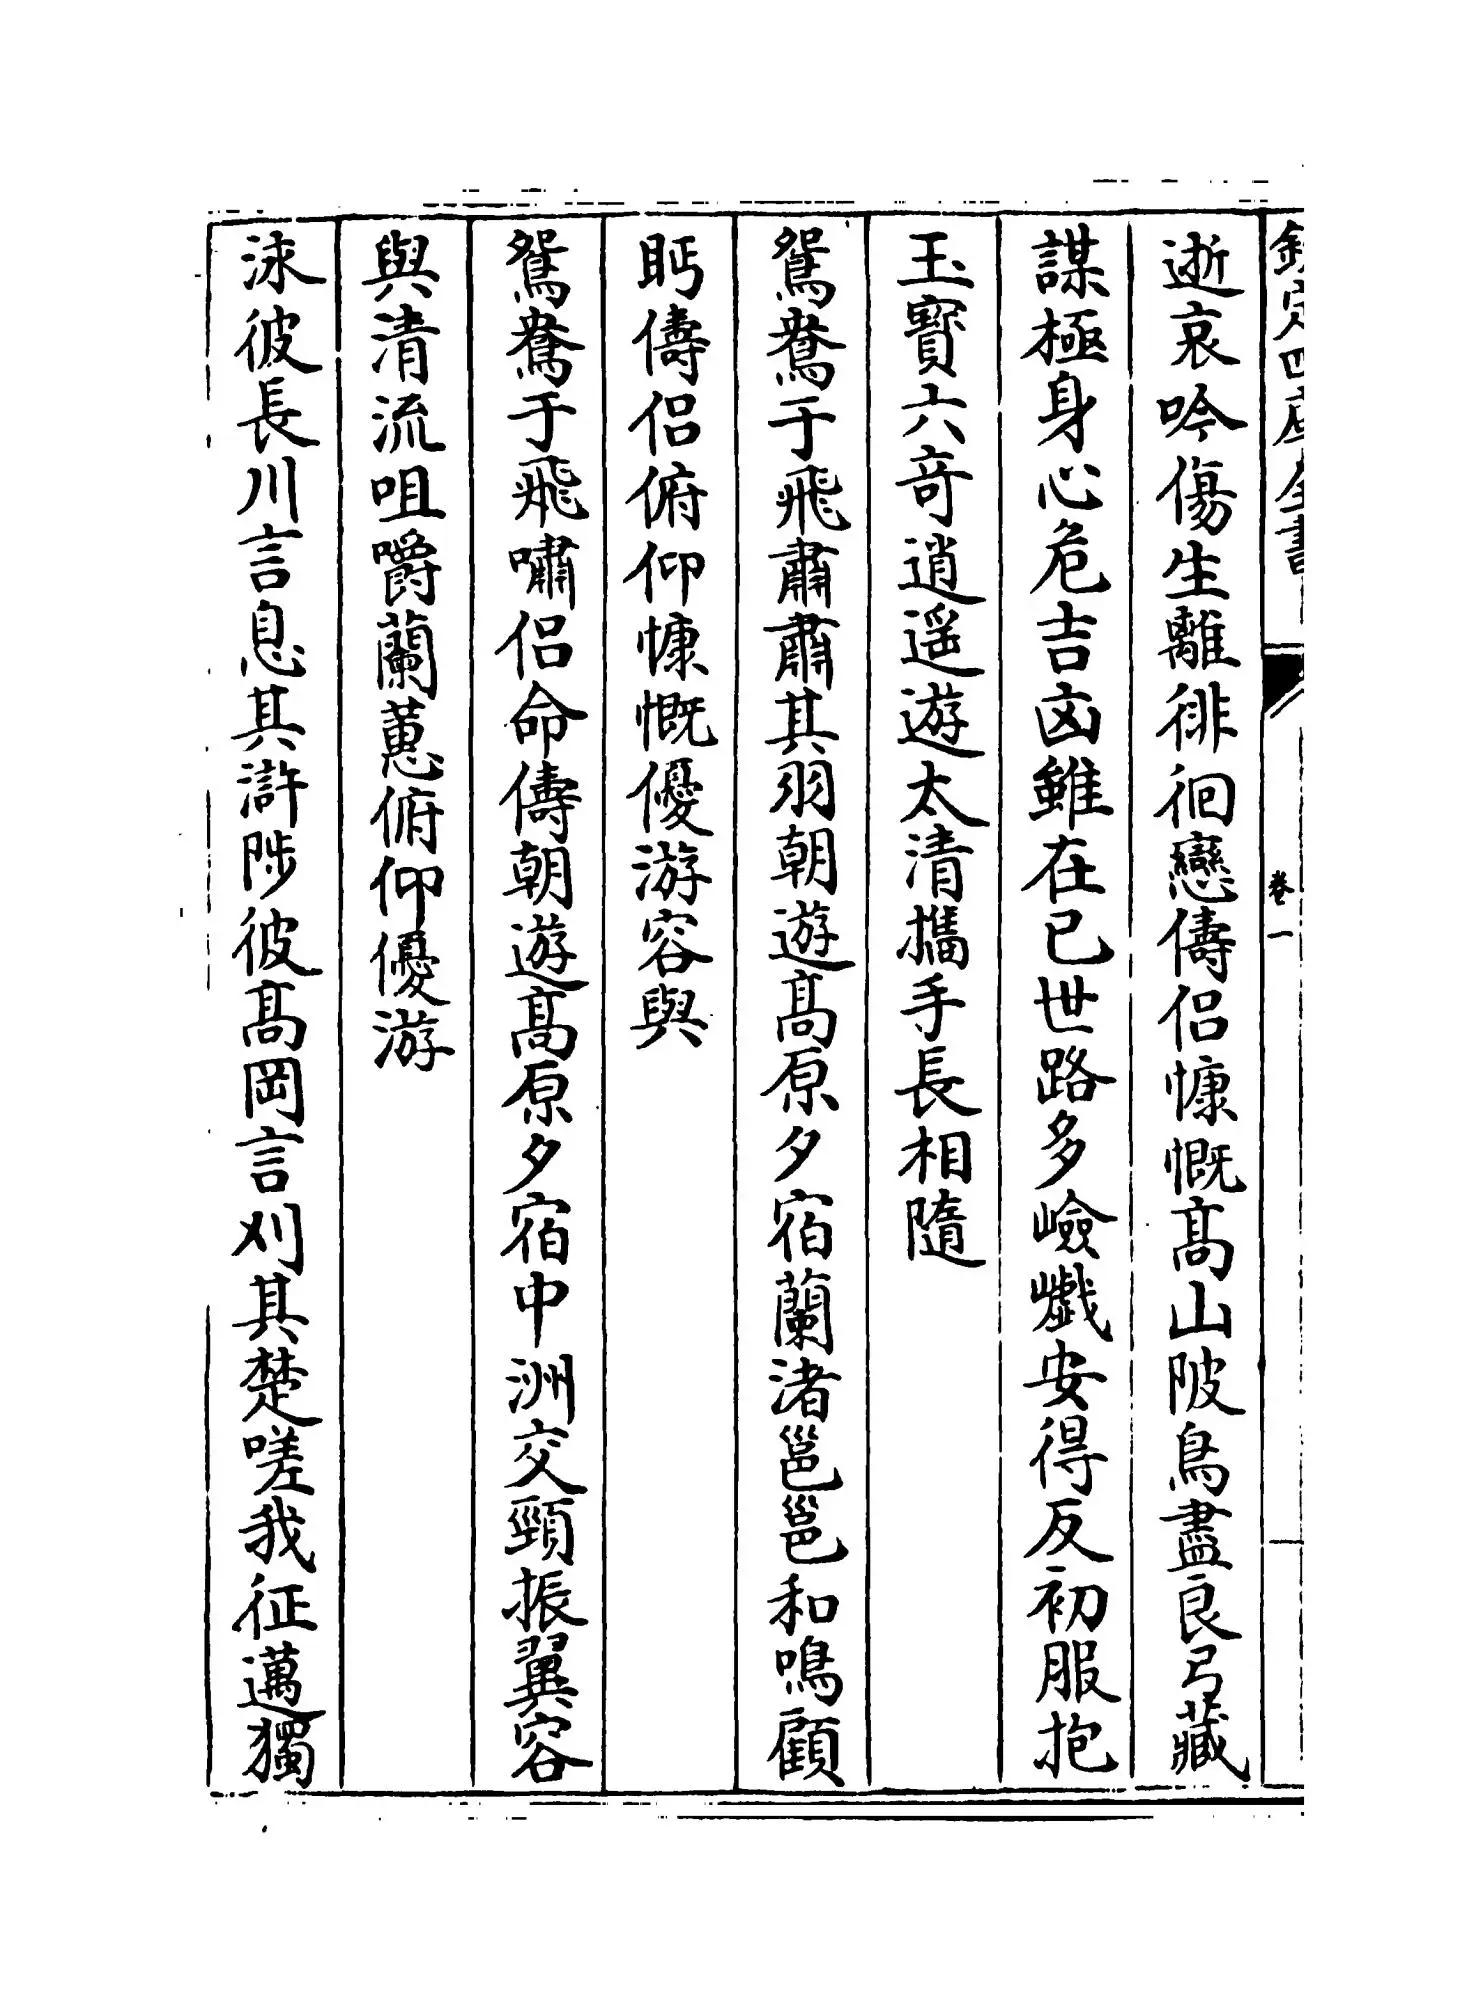 欽定四庫全書
卷一
逝哀吟傷生離徘徊戀儔侶慷慨髙山陂鳥盡良弓藏
謀極身心危吉凶雖在已世路多嶮巇安得反初服抱
玉寳六竒逍遥遊太清攜手長相隨
鴛鴦于飛肅肅其羽朝遊髙原夕宿蘭渚邕邕和鳴顧
眄儔侶俯仰慷慨優游容與
鴛鴦于飛嘯侶命儔朝遊髙原夕宿中洲交頸振翼容
與清流咀嚼蘭蕙俯仰優游
泳彼長川言息其滸陟彼髙岡言刈其楚嗟我征邁獨